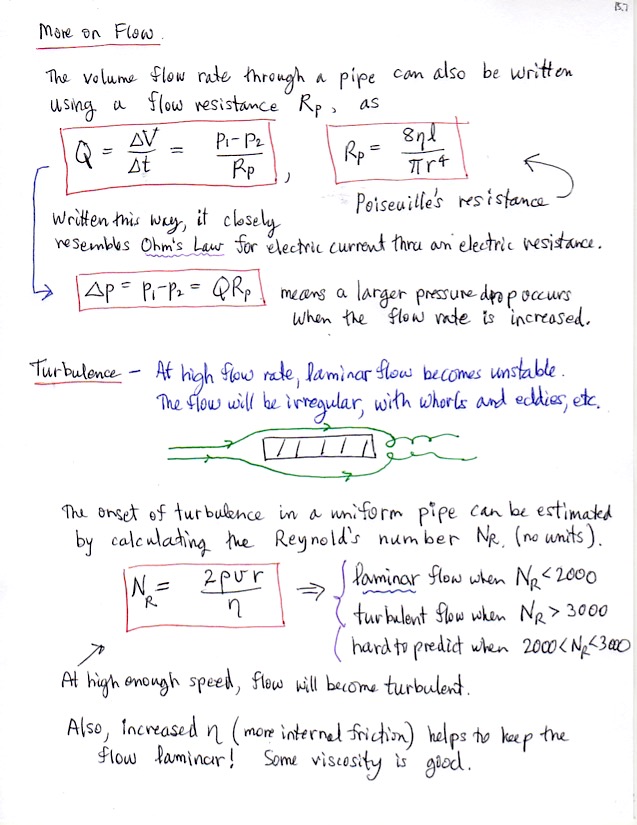 15.7
More on Flow.
The volume flow rate through a pipe can also be written
using a flow resistance Rp, as
Q = ΔV/Δt = (p₁-p₂)/Rp , Rp = 8ηl/πr⁴
Poiseuille's resistance
Written this way, it closely
resembles Ohm's Law for electric current thru an electric resistance.
Δp = p₁-p₂ = QRp means a larger pressure drop occurs
when the flow rate is increased.
Turbulence - At high flow rate, laminar flow becomes unstable.
The flow will be irregular, with whorls and eddies, etc.
The onset of turbulence in a uniform pipe can be estimated
by calculating the Reynold's number NR. (no units).
NR = 2ρvr/η ⇒ { laminar flow when NR<2000
turbulent flow when NR > 3000
hard to predict when 2000<NR<3000
At high enough speed, flow will become turbulent.
Also, increased η (more internal friction) helps to keep the
flow laminar! Some viscosity is good.